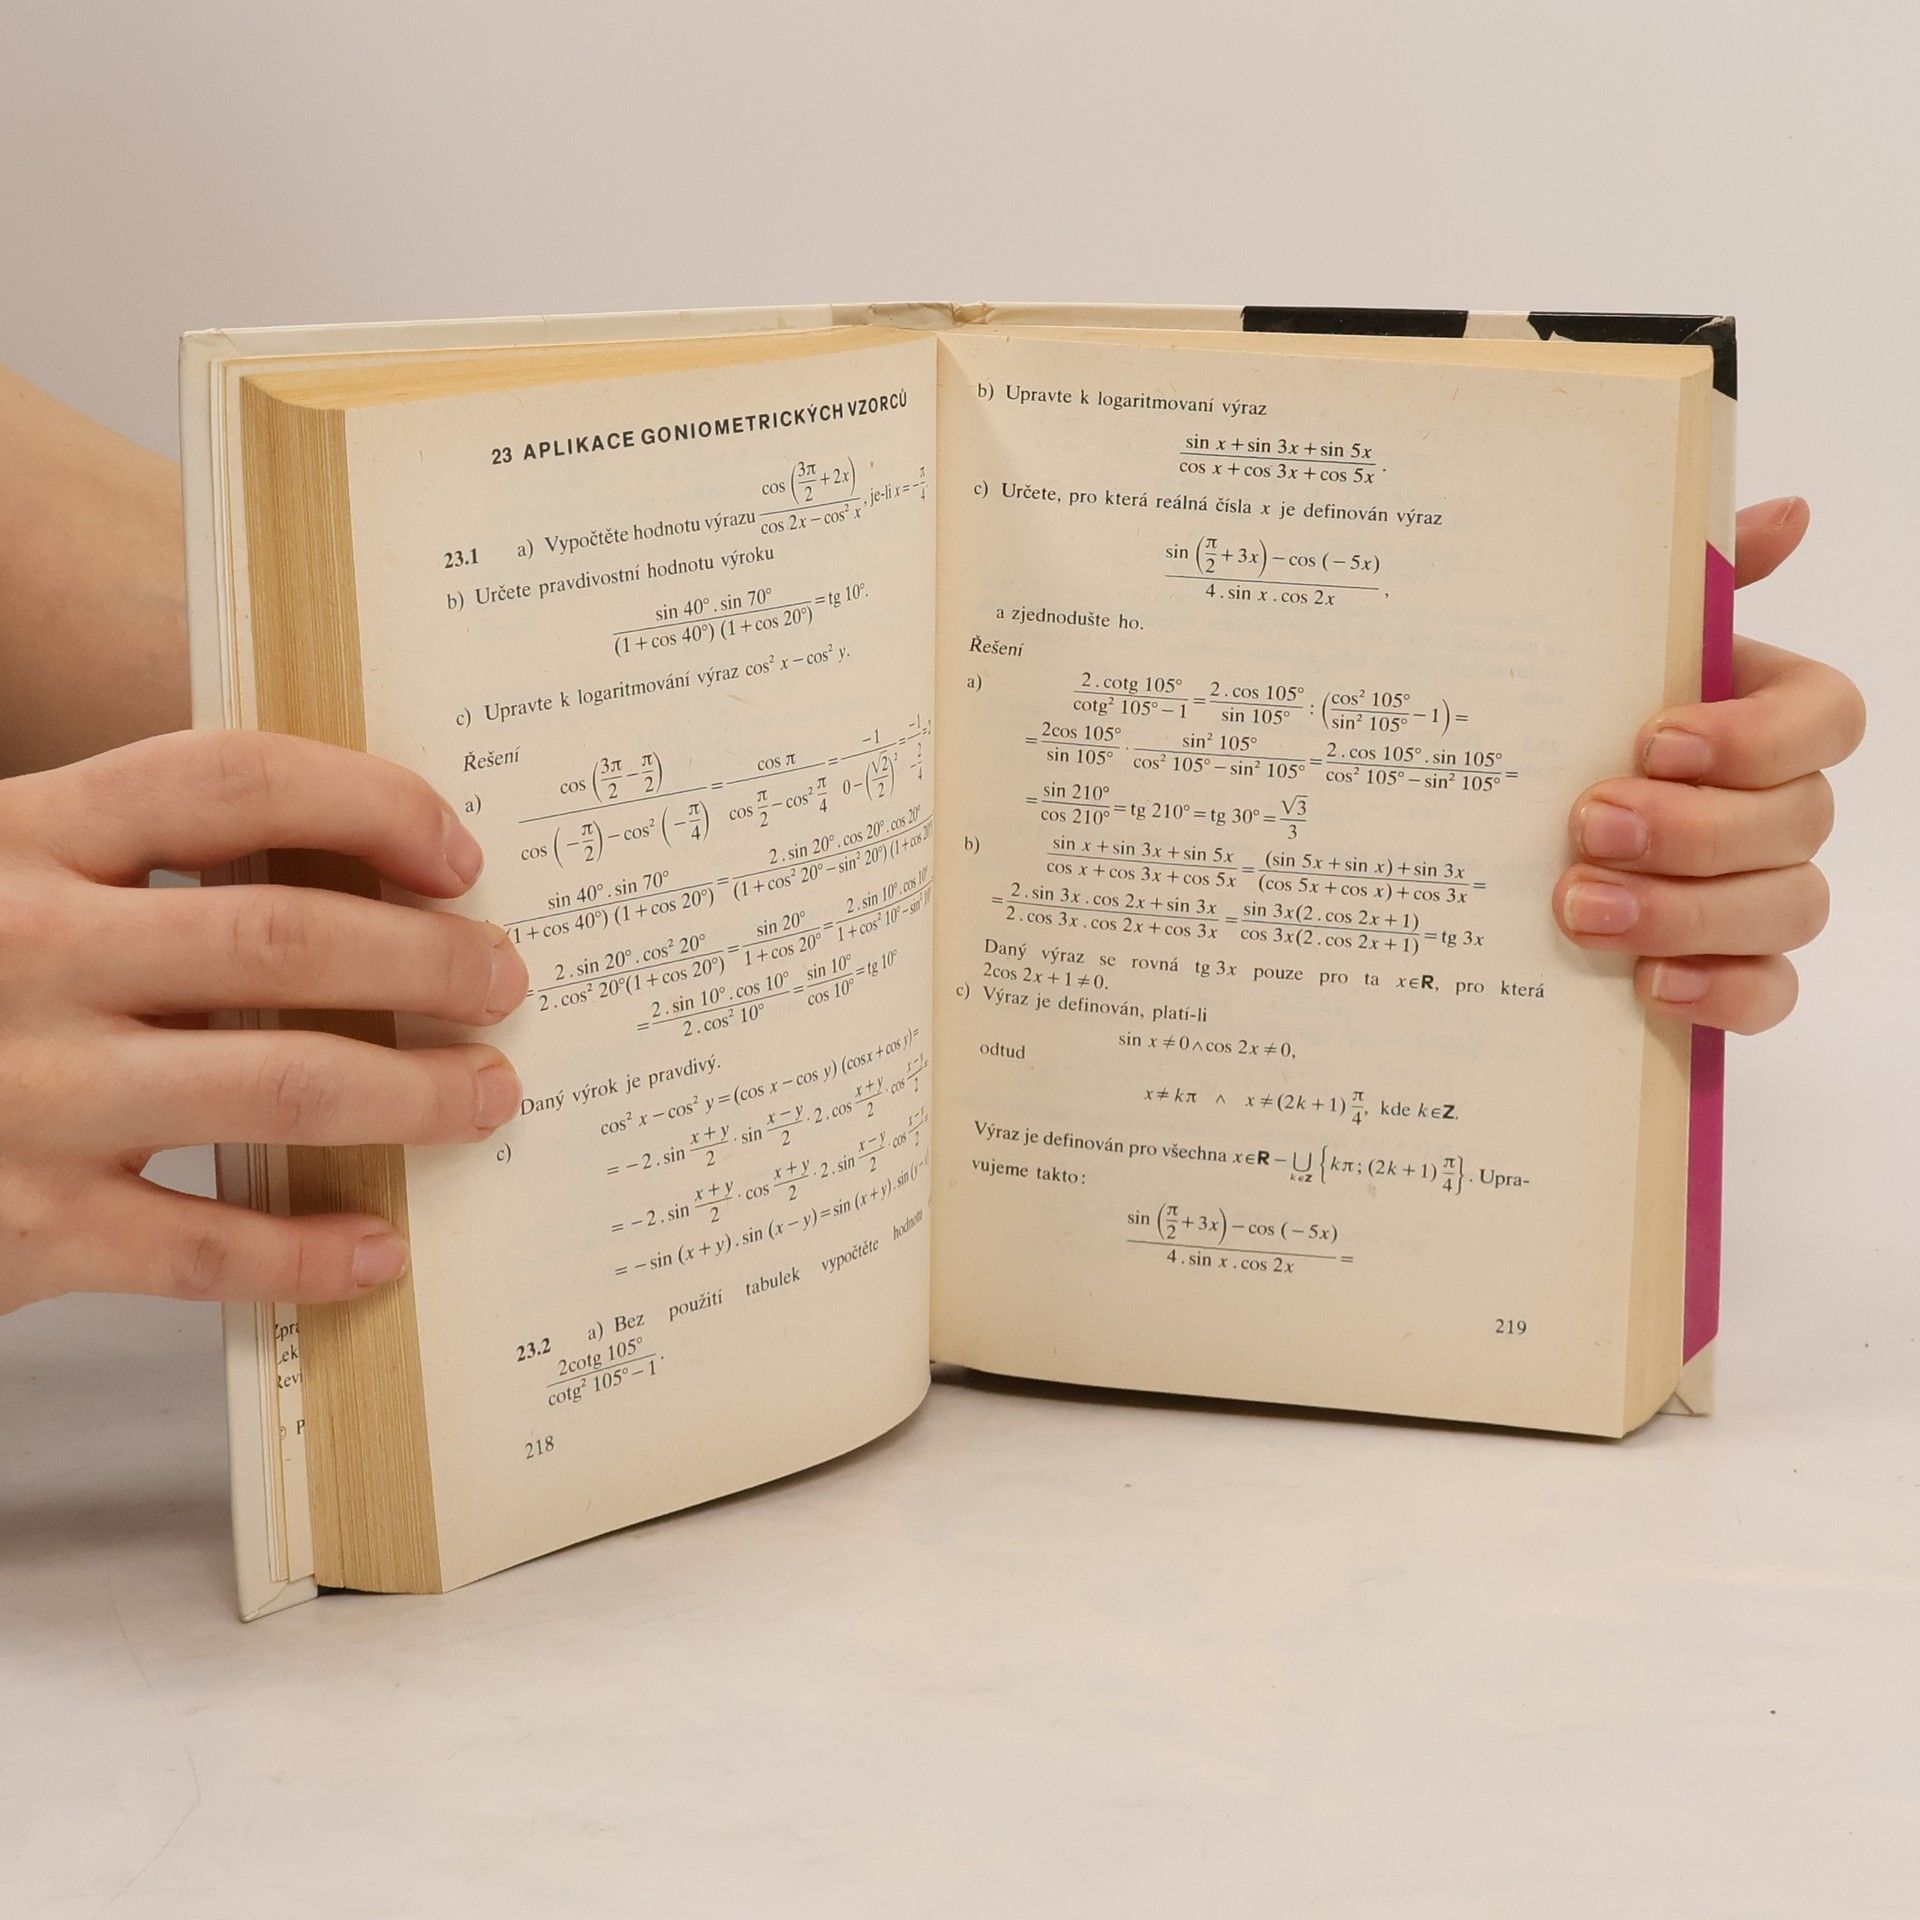 23 APLIKACE GONIOMETRICKÝCH VZORCŮ
23.1 a) Vypočtěte hodnotu výrazu cos (3π/2 + 2x) / (cos 2x − cos² x), je-li x = −π/4.
b) Určete pravdivostní hodnotu výroku
sin 40° . sin 70° / ((1 + cos 40°) (1 + cos 20°)) = tg 10°.
c) Upravte k logaritmování výraz cos² x − cos² y.
Řešení
a) cos (3π/2 − π/2) / (cos (−π/2) − cos² (−π/4)) = cos π / (cos π/2 − cos² π/4) = −1 / (0 − (√2/2)²) =
sin 40° . sin 70° / ((1 + cos 40°) (1 + cos 20°)) = 2 . sin 20° . cos 20° . cos 20° / ((1 + cos² 20° − sin² 20°) (1 + cos 20°
= 2 . sin 20° . cos² 20° / (2 . cos² 20°(1 + cos 20°)) = sin 20° / (1 + cos 20°) = 2 . sin 10° . cos 10° / (1 + cos² 10° − sin² 10°
= 2 . sin 10° . cos 10° / (2 . cos² 10°) = sin 10° / cos 10° = tg 10°
Daný výrok je pravdivý.
c) cos² x − cos² y = (cos x − cos y) (cos x + cos y) =
= −2 . sin (x+y)/2 . sin (x−y)/2 . 2 . cos (x+y)/2 . cos (x−y)/2 =
= −2 . sin (x+y)/2 . cos (x+y)/2 . 2 . sin (x−y)/2 . cos (x−y)/2 =
= −sin (x + y) . sin (x − y) = sin (x + y) . sin (y −
23.2 a) Bez použití tabulek vypočtěte hodnotu
2cotg 105° / (cotg² 105° − 1).
218
b) Upravte k logaritmovaní výraz
(sin x + sin 3x + sin 5x) / (cos x + cos 3x + cos 5x).
c) Určete, pro která reálná čísla x je definován výraz
(sin (π/2 + 3x) − cos (−5x)) / (4 . sin x . cos 2x),
a zjednodušte ho.
Řešení
a) 2 . cotg 105° / (cotg² 105° − 1) = 2 . cos 105° / sin 105° : (cos² 105° / sin² 105° − 1) =
= 2cos 105° / sin 105° . sin² 105° / (cos² 105° − sin² 105°) = 2 . cos 105° . sin 105° / (cos² 105° − sin² 105°) =
= sin 210° / cos 210° = tg 210° = tg 30° = √3/3
b) (sin x + sin 3x + sin 5x) / (cos x + cos 3x + cos 5x) = ((sin 5x + sin x) + sin 3x) / ((cos 5x + cos x) + cos 3x) =
= (2 . sin 3x . cos 2x + sin 3x) / (2 . cos 3x . cos 2x + cos 3x) = sin 3x(2 . cos 2x + 1) / (cos 3x(2 . cos 2x + 1)) = tg 3x
Daný výraz se rovná tg 3x pouze pro ta x∈R, pro která
2cos 2x + 1 ≠ 0.
c) Výraz je definován, platí-li
sin x ≠ 0 ∧ cos 2x ≠ 0,
odtud
x ≠ kπ ∧ x ≠ (2k + 1) π/4, kde k∈Z.
Výraz je definován pro všechna x∈R − ⋃ k∈Z {kπ; (2k + 1) π/4}. Upra-
vujeme takto:
(sin (π/2 + 3x) − cos (−5x)) / (4 . sin x . cos 2x) =
219